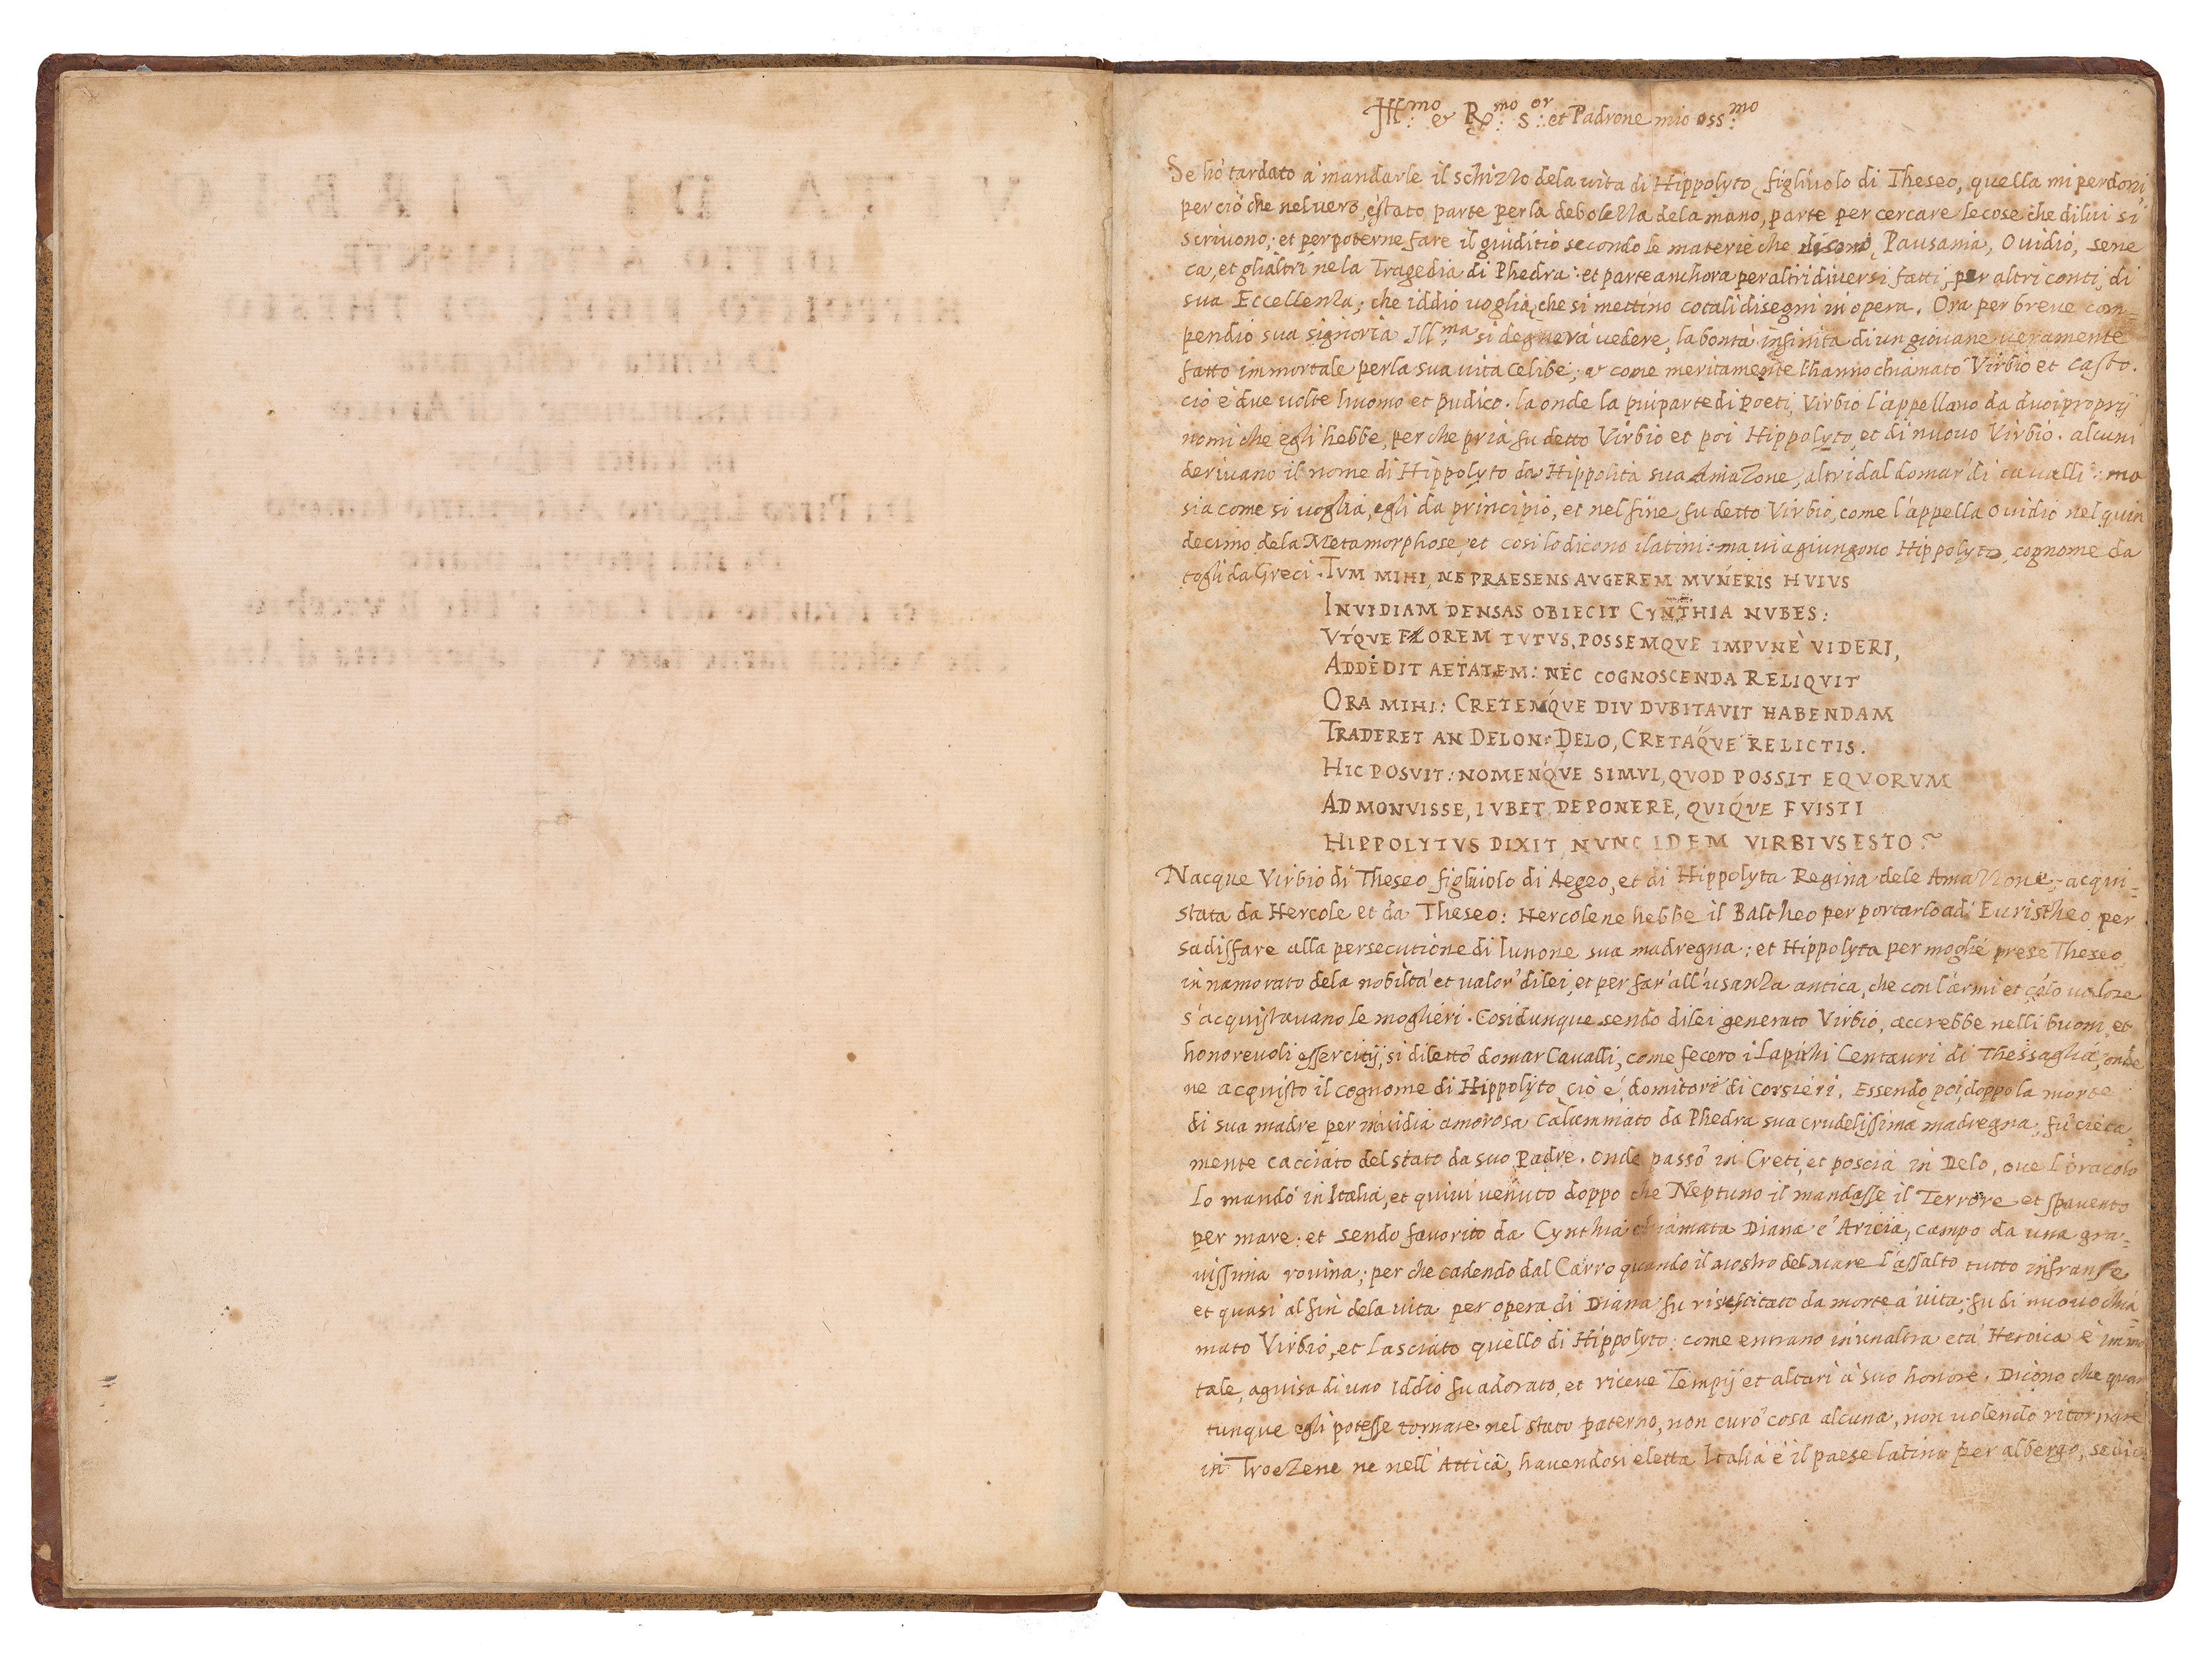 Ill:mo & R:mo S:or et Padrone mio oss:mo
Se hò tardato à mandarle il schizzo dela vita di Hippolyto figliuolo di Theseo, quella mi perdoni
perciò che nel vero, è stato parte per la debolezza dela mano, parte per cercare le cose che di lui si
scrivono; et per poterne fare il giuditio secondo le materie che dicono Pausania, Ovidio, Sene
ca, et gli altri ne la Tragedia di Phedra: et parte anchora per altri diversi fatti, per altri conti, di
sua Eccellenza; che iddio voglia che si mettino cotali disegni in opera. Ora per breve com=
pendio sua signoria Ill:ma si degnerà vedere, la bontà infinita di un giovane veramente
fatto immortale per la sua vita celibe; & come meritamente l'hanno chiamato Virbio et casto.
ciò è due volte huomo et pudico. la onde la piu parte di Poeti, Virbio l'appellano da duoi proprij
nomi che egli hebbe, per che pria fu detto Virbio et poi Hippolyto, et di nuovo Virbio. alcuni
derivano il nome di Hippolyto da Hippolita sua Amazone, altri dal domar' di cavalli: ma
sia come si voglia, egli da principio, et nel fine fu detto Virbio, come l'appella Ovidio nel quin
decimo dela Metamorphose, et cosi lo dicono i latini: ma vi agiungono Hippolyto, cognome da
togli da Greci. TVM MIHI, NE PRAESENS AVGEREM MVNERIS HVIVS
INVIDIAM DENSAS OBIECIT CYNTHIA NVBES:
VTQVE FLOREM TVTVS, POSSEMQVE IMPVNE VIDERI,
ADDEDIT AETATEM: NEC COGNOSCENDA RELIQVIT
ORA MIHI: CRETEMQVE DIV DVBITAVIT HABENDAM
TRADERET AN DELON: DELO, CRETAQVE RELICTIS.
HIC POSVIT: NOMENQVE SIMVL, QVOD POSSIT EQVORVM
ADMONVISSE, IVBET DEPONERE, QVIQVE FVISTI
HIPPOLYTVS DIXIT, NVNC IDEM VIRBIVS ESTO:~
Nacque Virbio di Theseo figliuolo di Aegeo, et di Hippolyta Regina dele Amazzone, acqui=
stata da Hercole et da Theseo: Hercole ne hebbe il Baltheo per portarlo ad Euristheo per
sadisfare alla persecutione di Iunone sua madregna; et Hippolyta per moglie prese Theseo
in namorato dela nobiltà et valor' di lei, et per far' all'usanza antica, che con l'armi et cólo valore
s'acquistavano le moglieri. Cosi dunque sendo di lei generato Virbio, accrebbe nelli buoni, et
honorevoli essercitij, si dilettò domar Cavalli, come fecero i Lapithi Centauri di Thessaglia, onde
ne acquisto il cognome di Hippolyto ciò é, domitore di corsieri. Essendo poi, doppo la morte
di sua madre per invidia amorosa calunniato da Phedra sua crudelissima madregna, fu cieca=
mente cacciato del stato da suo Padre. onde passò in Creti, et poscia in Delo, ove l'oracolo
Lo mandò in Italia, et quivi venuto doppo che Neptuno il mandasse il Terrore et spavento
per mare: et sendo favorito da Cynthia chiamata Diana e' Aricia, campò da una gra=
vissima rovina; per che cadendo dal Carro quando il mostro del mare l'assaltò tutto infranse
et quasi al fin dela vita per opera di Diana fu risuscitato da morte a' vita, fu di nuovo chia
mato Virbio, et lasciato quello di Hippolyto: come entrano in un altra età Heroica è immo
tale, aguisa di uno Iddio fu adorato, et riceve Tempij et altari à suo honore. Dicono che quan
tunque egli potesse tornare nel stato paterno, non curò cosa alcuna, non volendo ritornare
in Troezene ne nell' Attica, havendosi eletta Italia è il paese latino per albergo,